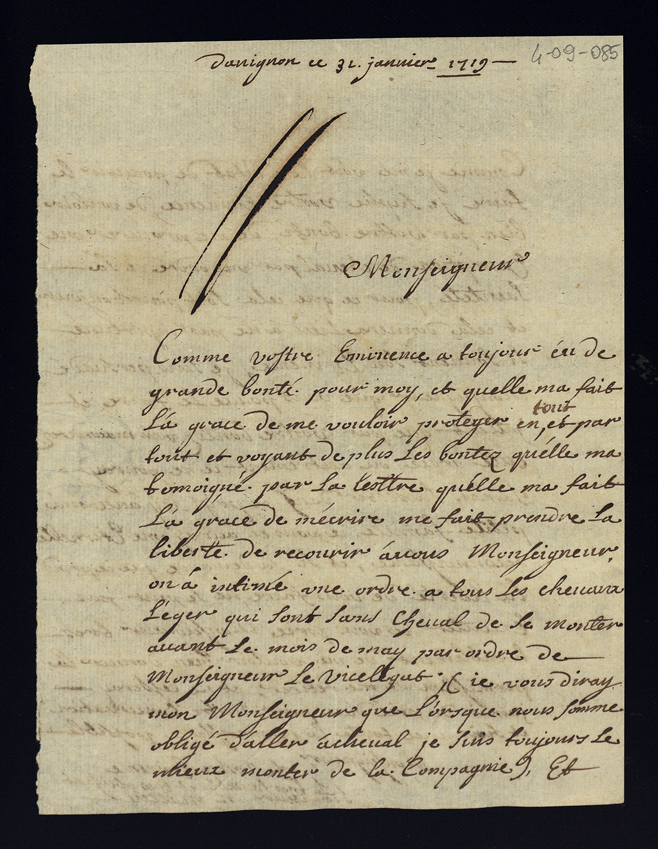 Davignon ce 31. janvier 1719 —
4-09-085
Monseigneur
Comme vostre Eminence a toujours éu de
grande bonté pour moy, et quelle ma fait
La grace de me vouloir proteger en tout, et par
tout et voyant de plus Les bontez qu'élle ma
temoigné par La Lesttre qu'élle ma fait
La grace de mécrire me fait prendre La
liberte de recourir ávous Monseigneur.
on á intimé vne ordre a tous Les chevaux
Léger qui sont sans Cheval de se monter
auant Le mois de may par ordre de —
Monseigneur Le Vicellegat; ( ie vous diray
mon Monseigneur que Lorsque nous somme
obligé d'aller ácheval je suis toujours Le
mieux monter de la Compagnie ), Et